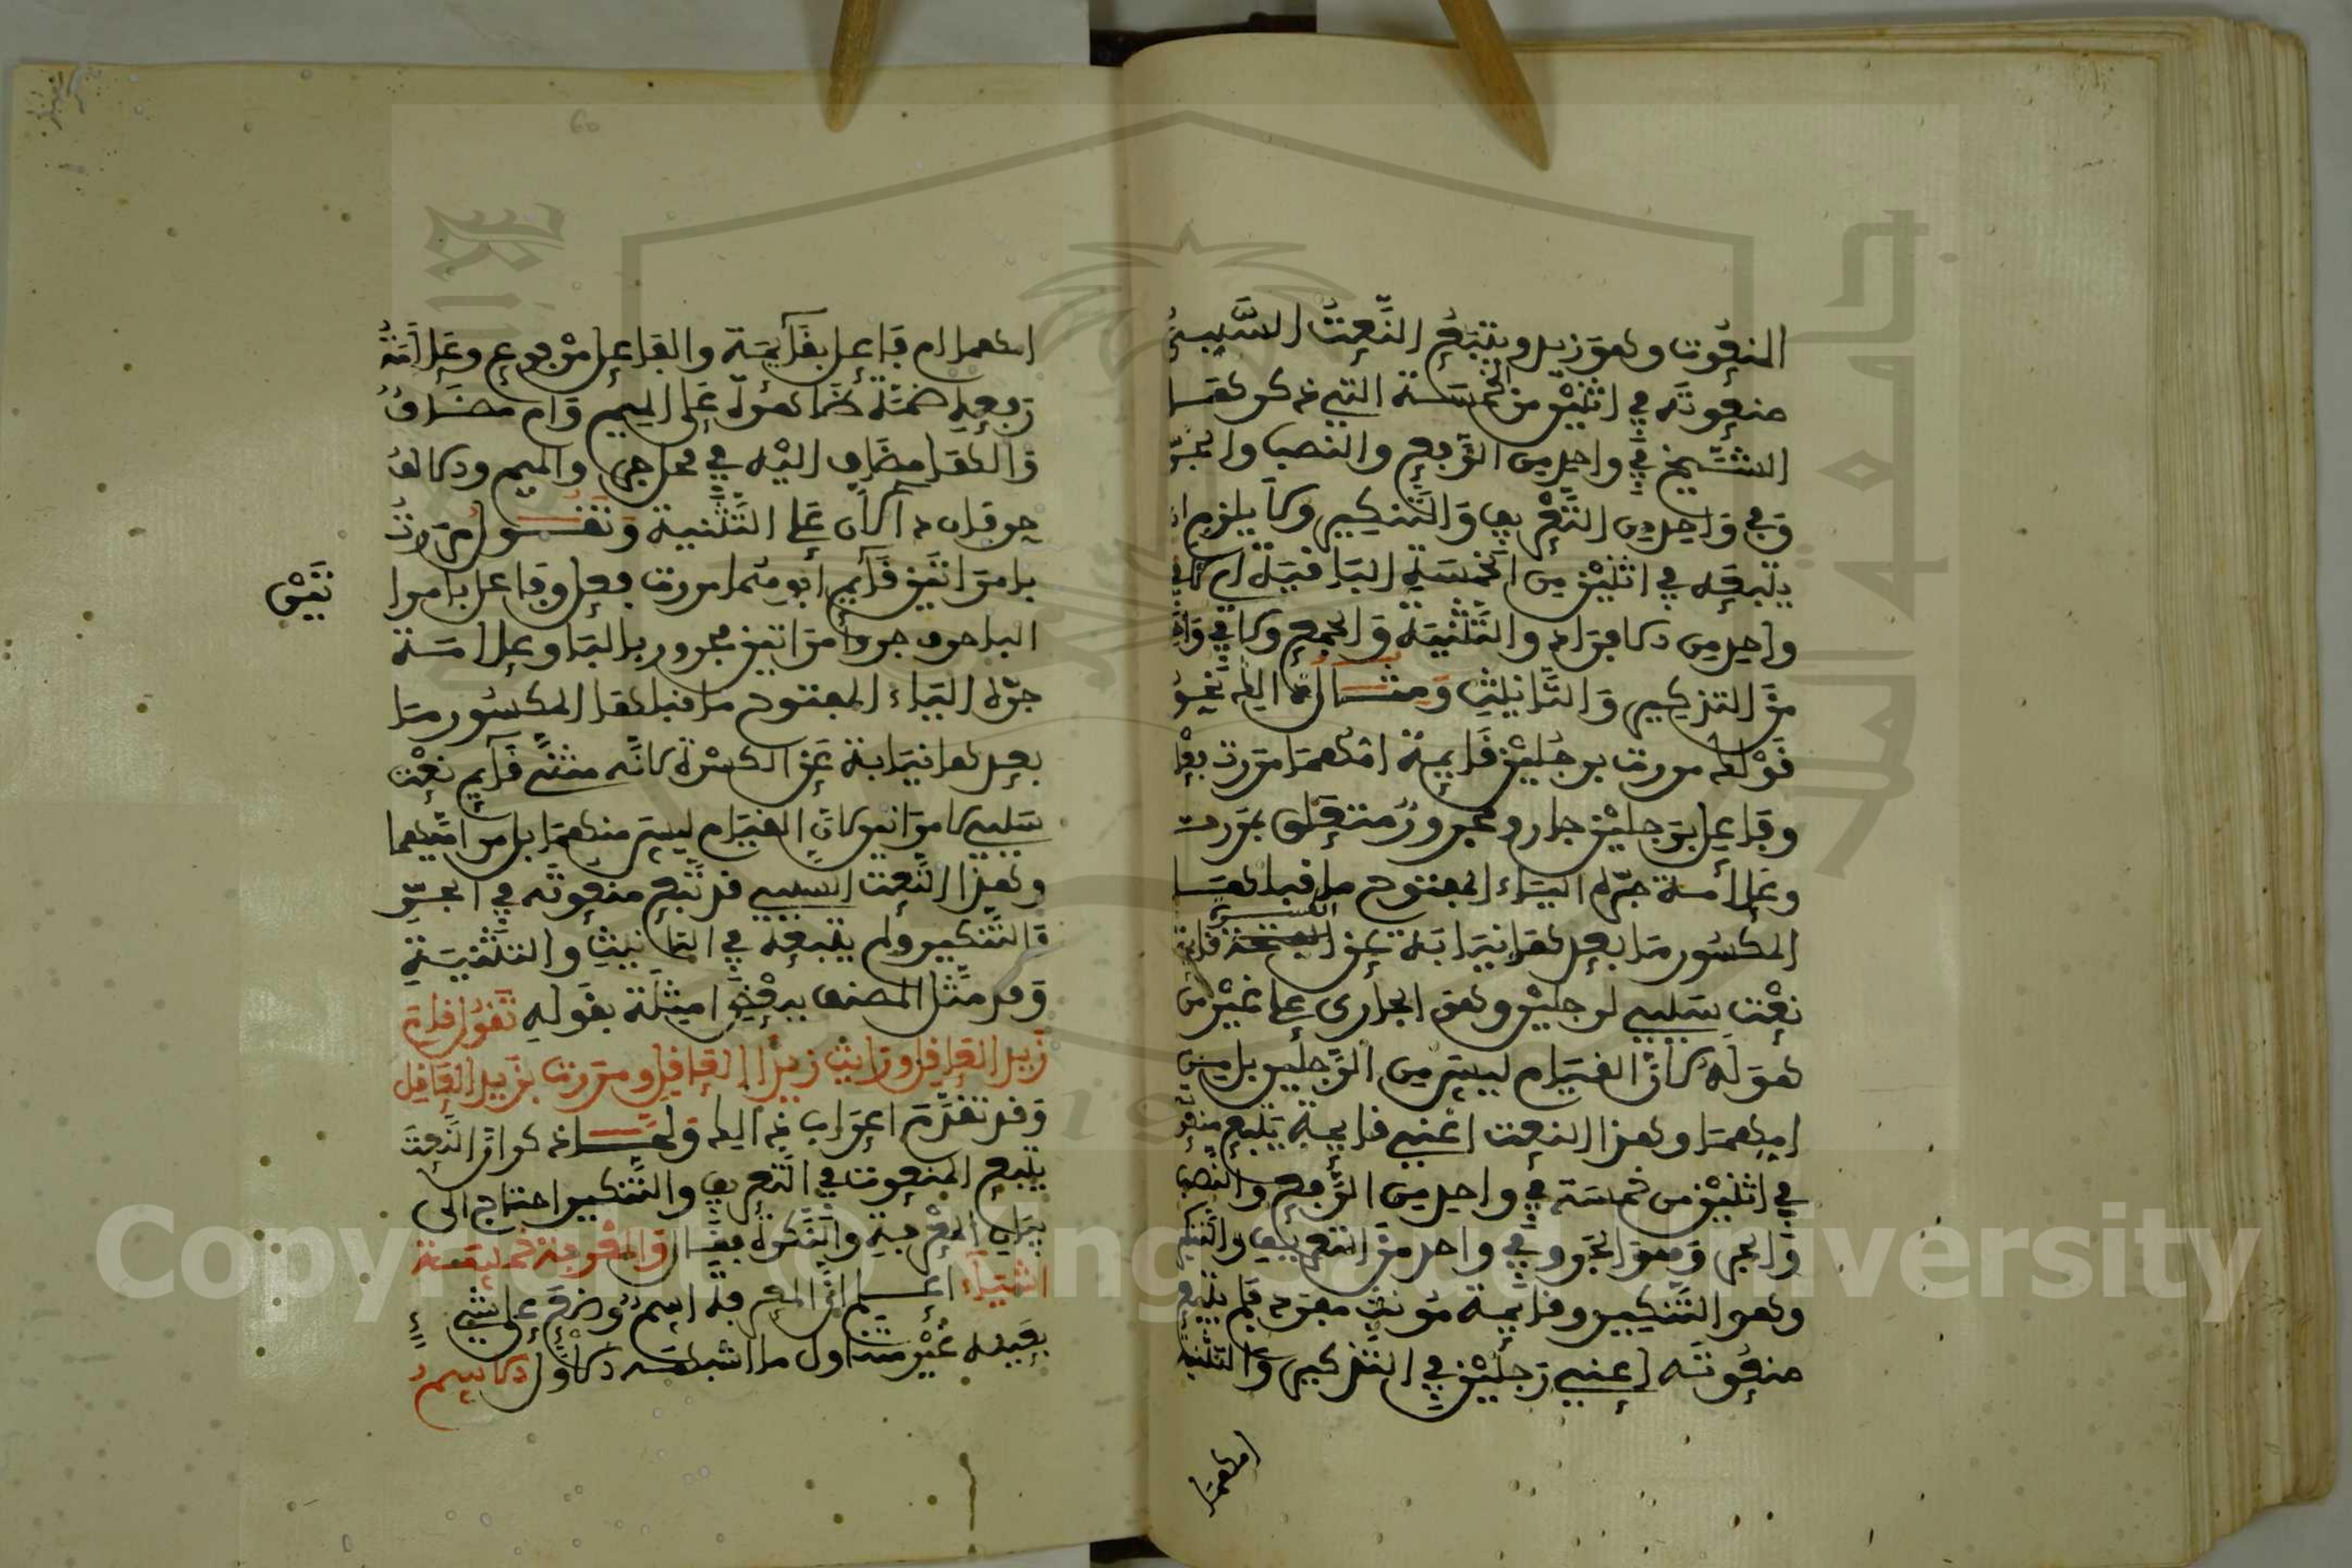 المنعوت وهو زيد ويتبع النعت السببي
منعوته في اثنين من الخمسة التي ذكرها
الشيخ في واحد من الرفع والنصب والجر
وفي واحد من التعريف والتنكير ولا يلزم ان
يتبعه في اثنين من الخمسة الباقية اي لا في
واحد من الافراد والتثنية والجمع ولا في واحد
من التذكير والتانيث ومثال ذالك نحو
قولك مررت برجلين قايمة امهما مررت فعل
وفاعل برجلين جار ومجرور متعلق بمررت
وعلامة جره الياء المفتوح ما قبلها
المكسور ما بعدها نيابة عن الكسرة قايمة
نعت سببي لرجلين وهو الجاري على غير من
هو له لان القيام ليس من الرجلين بل من
امهما وهذا النعت اعني قايمة يتبع منعوته
في اثنين من خمسة في واحد من الرفع والنصب
والجر وهو الجر وفي واحد من التعريف والتنكير
وهو التنكير وقايمة مونث مفرد فلم يتبع
منعوته اعني رجلين في التذكير والتثنية
امهما
امهما ام فاعل بقايمة والفاعل مرفوع وعلامة
رفعه ضمة ظاهرة على الميم وام مضاف
والها مضاف اليه في محل جر والميم والالف
حرفان دالان على التثنية وتقول مررت
بامراتين قايم ابوهما مررت فعل وفاعل بامرا
تين
البا حرف جر وامراتين مجرور بالبا وعلامة
جره الياء المفتوح ما قبلها المكسور ما
بعدها نيابة عن الكسرة لانه مثنى قايم نعت
سببي لامراتين لان القيام ليس منهما بل من ابيهما
وهذا النعت السببي قد تبع منعوته في الجر
والتنكير ولم يتبعه في التانيث والتثنية
وقد مثل المصنف ببقية امثلة بقوله تقول قام
زيد العاقل ورايت زيدا العاقل ومررت بزيد العاقل
وقد تقدم اعراب ذالك ولما ذكر ان النعت
يتبع المنعوت في التعريف والتنكير احتاج الى
بيان المعرفة والنكرة فقال والمعرفة خمسة
اشياء اعلم ان المعرفة اسم وضع على شيء
بعينه غير متناول ما اشبهه الاول الاسم